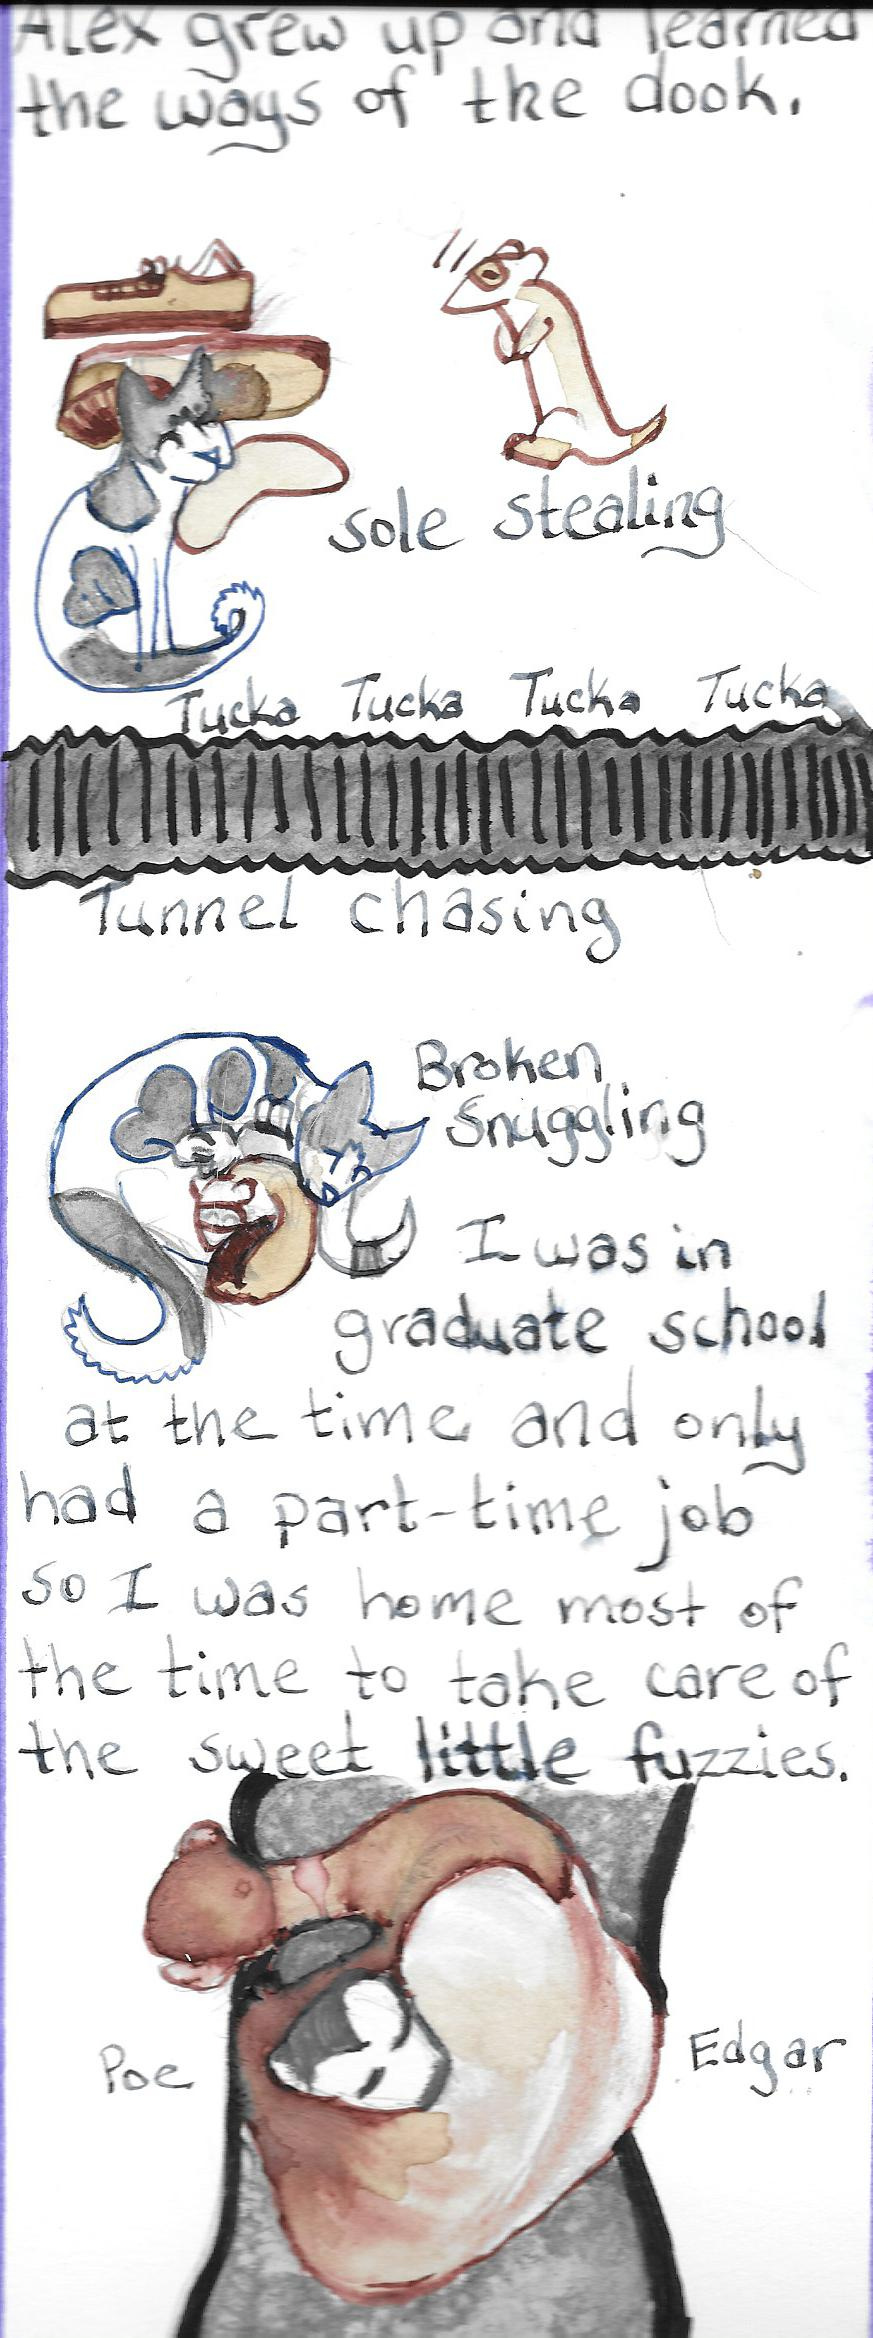 Alex grew up and learned
the ways of the dook.
sole stealing
Tucka Tucka Tucka Tucka
Tunnel chasing
Broken
Snuggling
I was in
graduate school
at the time and only
had a part-time job
so I was home most of
the time to take care of
the sweet little fuzzies.
Poe
Edgar